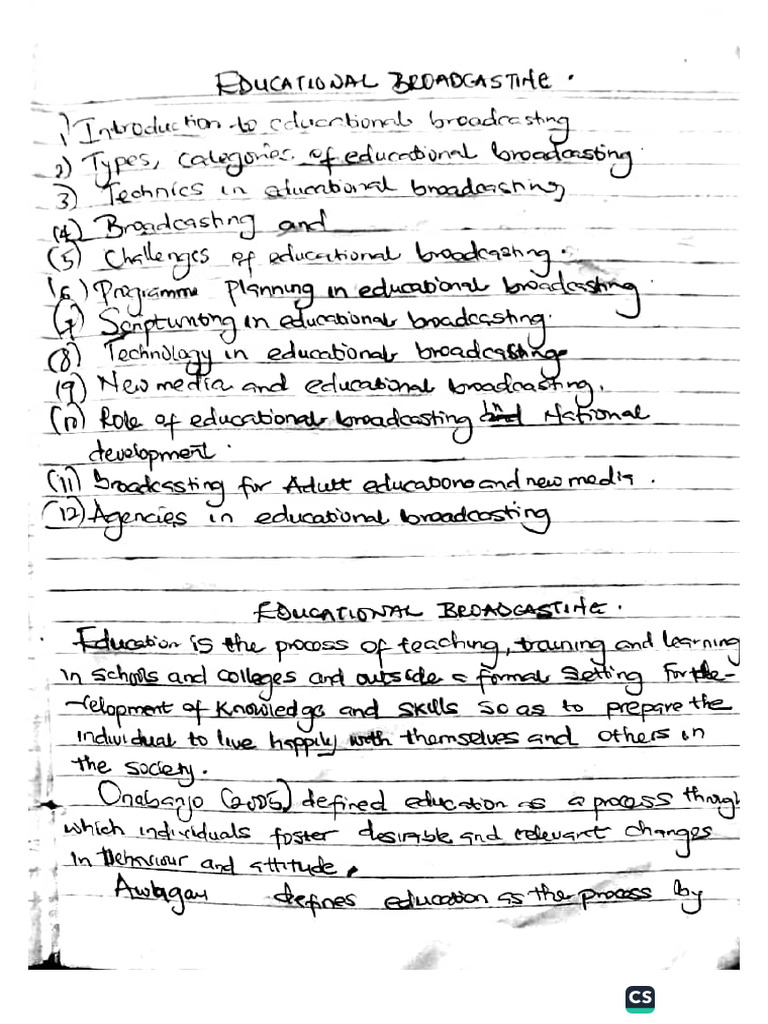 EDUCATIONAL BROADCASTING.
1) Introduction to educational broadcasting
2) Types, categories of educational broadcasting.
3) Technics in educational broadcasting
(4) Broadcasting and
(5) Challenges of educational broadcasting.
(6) Programme planning in educational broadcasting.
(7) Scriptwriting in educational broadcasting.
(8) Technology in educational broadcasting
(9) New media and educational broadcasting.
(10) Role of educational broadcasting in National
development.
(11) broadcasting for Adult educations and new media.
(12) Agencies in educational broadcasting
EDUCATIONAL BROADCASTING.
Education is the process of teaching, training and learning
in schools and colleges and outside a formal setting for the
velopment of knowledge and skills so as to prepare the
individual to live happily with themselves and others in
the society.
Onabanjo (2005) defined education as a process through
which individuals foster desirable and relevant changes
in behaviour and attitude.
defines education as the process by
CS